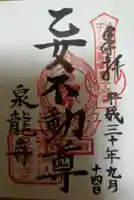 奉拝
平成三十年九月
十四日
乙女不動尊
泉龍寺